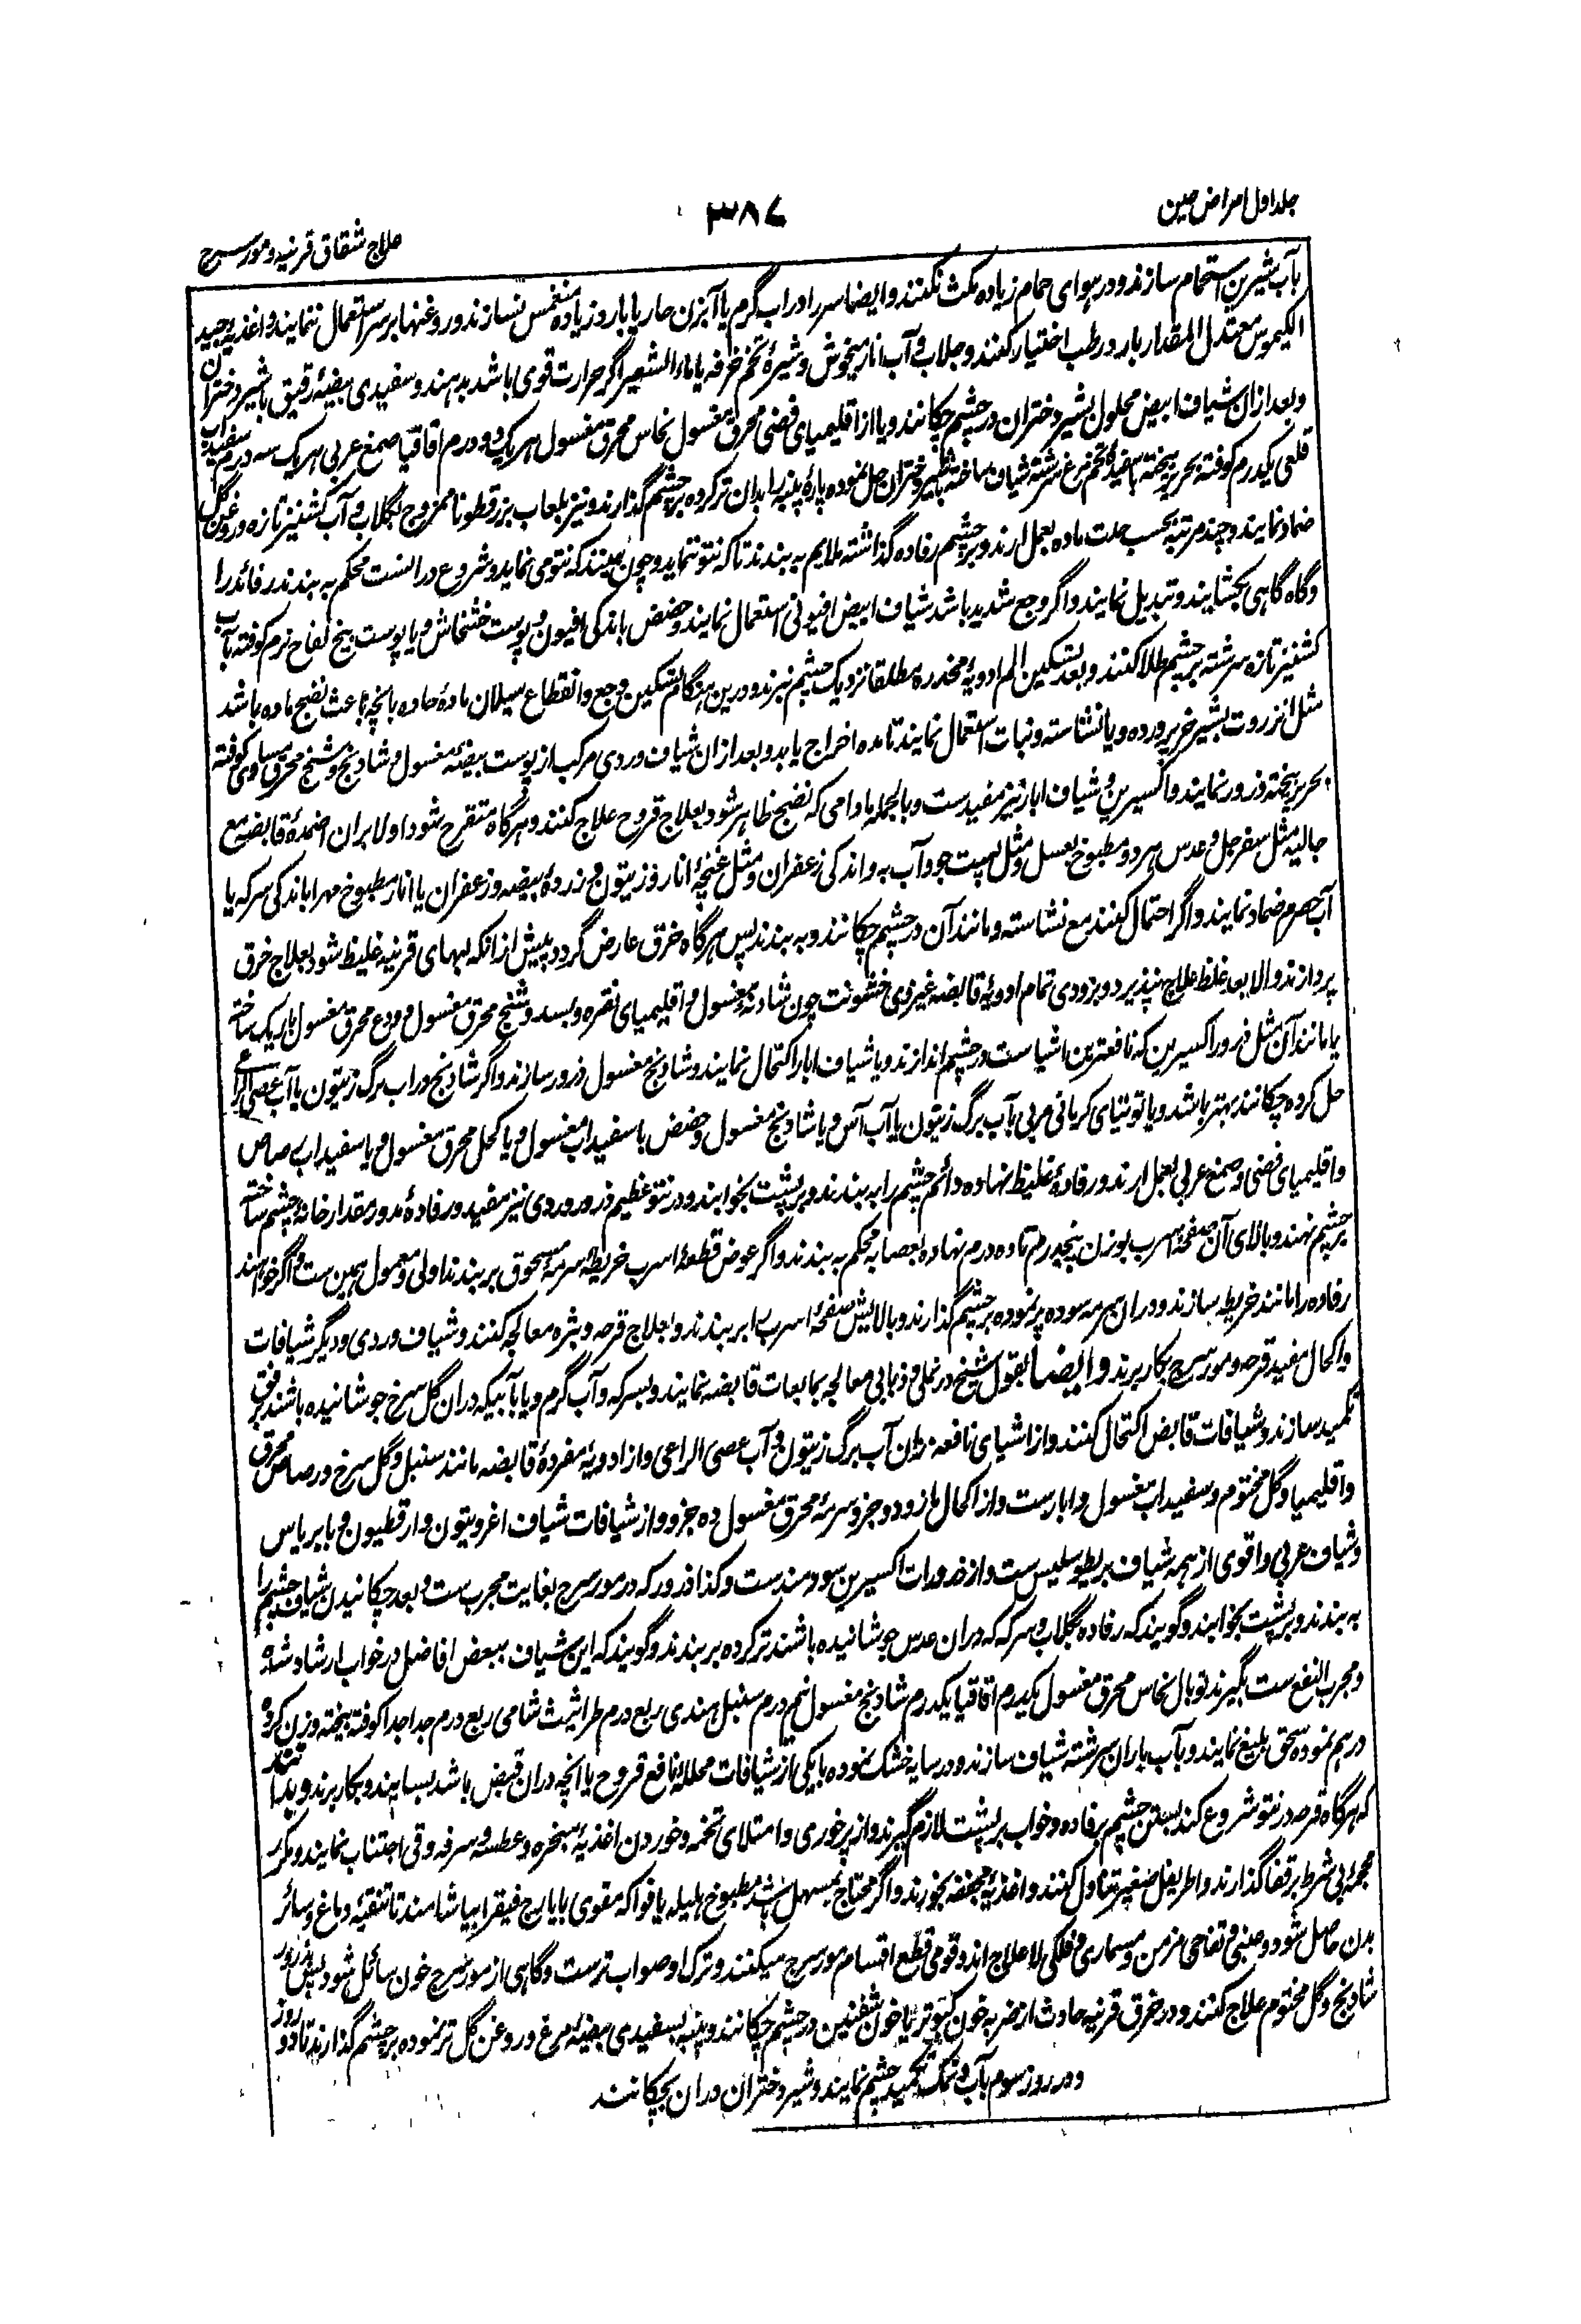 جلد اول امراض عین
۳۸۷
علاج شقاق قرنیه و مورسرج
بآب شیرین استحمام سازند و در هوای حمام زیاده مکث نکنند و ایضا سر را در آب گرم یا آبزن حار یا بارد زیاده منغمس نسازند و روغنها بر سر استعمال ننمایند و اغذیه جید
الکیموس معتدل المقدار بارد رطب اختیار کنند و جلاب و آب انار میخوش و شیرهٔ تخم خرفه یا ماء الشعیر اگر حرارت قوی باشد بدهند و سفیدی بیضهٔ رقیق با شیر دختران
و بعد ازان شیاف ابیض محلول بشیر دختران در چشم چکانند و یا از اقلیمیای فضی محرق مغسول نحاس محرق مغسول هر یک دو درم اقاقیا صمغ عربی هر یک سه درم سفیداب
قلعی یکدرم کوفته بحریر بیخته بسفیدهٔ تخم مرغ سرشته شیاف ساخته بشیر دختران حل نموده پارهٔ پنبه را بدان تر کرده بر چشم گذارند و نیز بلعاب بزرقطونا ممزوج بگلاب و آب کشنیز تازه و روغن گل
ضماد نمایند و چند مرتبه بحسب حدت ماده بعمل ارند و بر چشم رفاده گذاشته ملایم به بندند تا که نتو ننماید و چون بینند که نتو می نماید و شروع در انست محکم به بندند رفائد را
و گاه گاهی بکشایند و تبدیل نمایند و اگر وجع شدید باشد شیاف ابیض افیونی استعمال نمایند و حضض باندکی افیون و پوست خشخاش و یا پوست بیخ لفاح نرم کوفته بآب
کشنیز تازه سرشته بر چشم طلا کنند و بعد تسکین الم ادویهٔ مخدره مطلقا نزدیک چشم نبرند و درین هنگام تسکین وجع و انقطاع سیلان مادهٔ حاده بانچه باعث نضج ماده باشد
مثل انزروت بشیر خر پرورده و یا نشاسته و نبات استعمال نمایند تا مده اخراج یابد و بعد ازان شیاف وردی مرکب از پوست بیضهٔ مغسول و شادنج و شنج محرق مساوی کوفته
بحریر بیخته ذرور نمایند و اکسیرین و شیاف ابار نیز مفید ست و بالجمله مادامی که نضج ظاهر شود بعلاج قروح علاج کنند و هرگاه متقرح شود اولا بران اضمدهٔ قابضه مع
جالیه مثل سفرجل و عدس هر دو مطبوخ بعسل و مثل پست جو و آب به و اندکی زعفران و مثل غنچهٔ انار و زیتون و زردهٔ بیضه و زعفران یا انار مطبوخ مهرا باندکی سرکه یا
آب حصرم ضماد نمایند و اگر احتمال کنند مع نشاسته و مانند آن در چشم چکانند و به بندند پس هرگاه خرق عارض گردد پیش ازانکه لبهای قرنیه غلیظ شود بعلاج خرق
پردازند و الا بعد غلظ علاج نپذیرد و بزودی تمام ادویهٔ قابضه غیر ذی خشونت چون شادنهٔ مغسول و اقلیمیای نقره و بسد و شنج محرق مغسول و ودع محرق مغسول باریک ساخته
یا مانند آن مثل ذرور اکسیرین که نافعترین اشیا ست در چشم اندازند و یا شیاف ابار اکتحال نمایند و شادنج مغسول ذرور سازند و اگر شادنج در آب برگ زیتون یا آب عصی الراعی
حل کرده چکانند بهتر باشد و یا توتیای کرمانی مربی بآب برگ زیتون یا آب آس و یا شادنج مغسول و حضض یا سفیداب مغسول و یا کحل محرق مغسول و یا اسفیداب رصاص
و اقلیمیای فضی و صمغ عربی بعمل ارند و رفادهٔ غلیظ نهاده دائم چشم را به بندند و بر پشت بخوابند و در نتو عظیم ذرور وردی نیز مفید و رفادهٔ مدور مقدار خانهٔ چشم ساخته
بر چشم نهند و بالای آن صفحهٔ اسرب بوزن پنجدرم تا ده درم نهاده بعصابه محکم به بندند و اگر عوض قطعهٔ اسرب خریطهٔ سرمهٔ مسحوق بر بندند اولی و معمول همین ست و اگر خواهند
رفاده را مانند خریطه سازند و دران سرمه سوده پر نموده بر چشم گذارند و بالایش صفحهٔ اسرب را بر بندند و بعلاج قرحه و بثره معالجه کنند و شیاف وردی و دیگر شیافات
و اکحال مفید قرحه و مورسرج بکار برند و ایضا بقول شیخ در نملی و ذبابی معالجه بمایعات قابضه نمایند و بسرکه و آب گرم و یا بآبیکه دران گل سرخ جوشانیده باشند برفق
تکمید سازند و شیافات قابض اکتحال کنند و از اشیای نافعه دران آب برگ زیتون و آب عصی الراعی و از ادویهٔ مفردهٔ قابضه مانند سنبل و گل سرخ و رصاص محرق
و اقلیمیا و گل مختوم و سفیداب مغسول و ابار ست و از اکحال مازو دو جزو سرمهٔ محرق مغسول ده جزو و از شیافات شیاف اغروبتون و ارقطیون و بابریاس
و شیاف عربی و اقوی از همه شیاف بریطوسلیس ست و از ذرورات اکسیرین سودمندست و کذا ذرور که در مورسرج بغایت مجرب ست و بعد چکانیدن شیاف چشم را
به بندند و بر پشت بخوابند و گویند که رفاده بگلاب و سرکه که دران عدس جوشانیده باشند تر کرده بر بندند و گویند که این شیاف ببعض افاضل در خواب ارشاد شده
و مجرب النفع ست بگیرند توبال نحاس محرق مغسول یکدرم اقاقیا یکدرم شادنج مغسول نیم درم سنبل هندی ربع درم طراثیث شامی ربع درم جدا جدا کوفته بیخته وزن کرده
درهم نموده سحق بلیغ نمایند و بآب باران سرشته شیاف سازند و در سایه خشک نموده بایکی از شیافات محلله نافع قروح یا انچه دران قبض باشد بسایند و بکار برند و بدانند
که هرگاه قرحه در نتو شروع کند بستن چشم برفاده و خواب بر پشت لازم گیرند و از پرخوری و امتلای تخمه و خوردن اغذیهٔ مبخره و عطسه و سرفه و قی اجتناب نمایند و مکرر
محجمهٔ بی شرط بر قفا گذارند و اطریفل صغیر تناول کنند و اغذیهٔ مجففه بخورند و اگر محتاج بمسهل باشد مطبوخ هلیله یا فواکه مقوی بایارج فیقرا بیاشامند تا تنقیهٔ دماغ و سائر
بدن حاصل شود و عنبی و تفاحی مزمن و مسماری و فلکی لا علاج اند و قومی قطع اقسام مورسرج میکنند و ترک او صواب ترست و گاهی از مورسرج خون سائل شود پس بذرور
شادنج و گل مختوم علاج کنند و در خرق قرنیه حادث از ضربه خون کبوتر یا خون شفنین در چشم چکانند و پنبه بسفیدی بیضهٔ مرغ و روغن گل تر نموده بر چشم گذارند تا دو روز
و در روز سوم بآب و نمک تکمید چشم نمایند و شیر دختران دران بچکانند